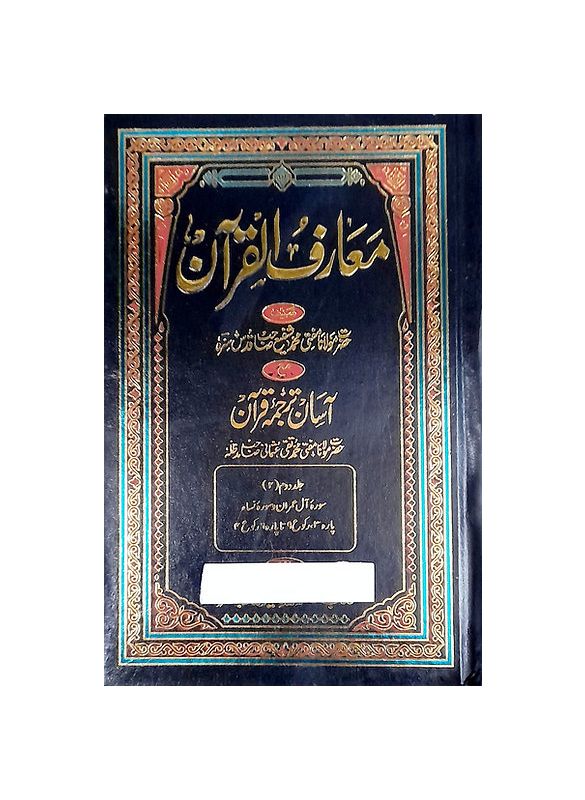 معارف القرآن
حضرت مولانا مفتی محمد شفیع صاحب قدس سرہ
مع
آسان ترجمۂ قرآن
حضرت مولانا مفتی محمد تقی عثمانی صاحب مدظلہ
جلد دوم (۲)
سورۂ آل عمران و سورۂ نساء
پارہ ۳، رکوع ۹ تا پارہ ۶، رکوع ۴